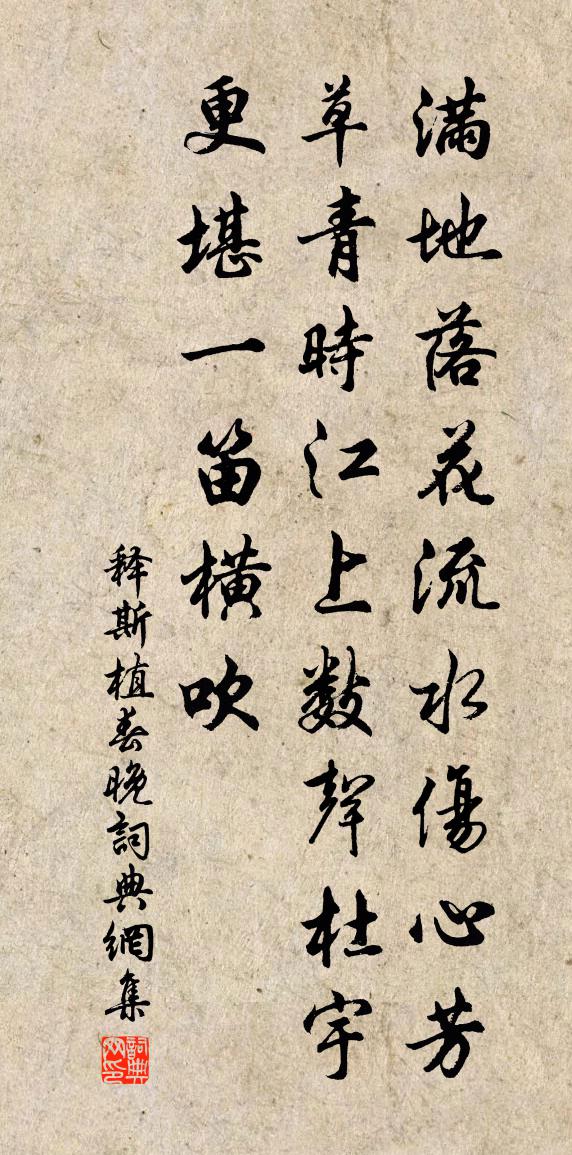 滿地落花流水傷心芳
草青時江上數聲杜宇
更堪一笛橫吹
释斯植春晚詞典網集
詞典网印